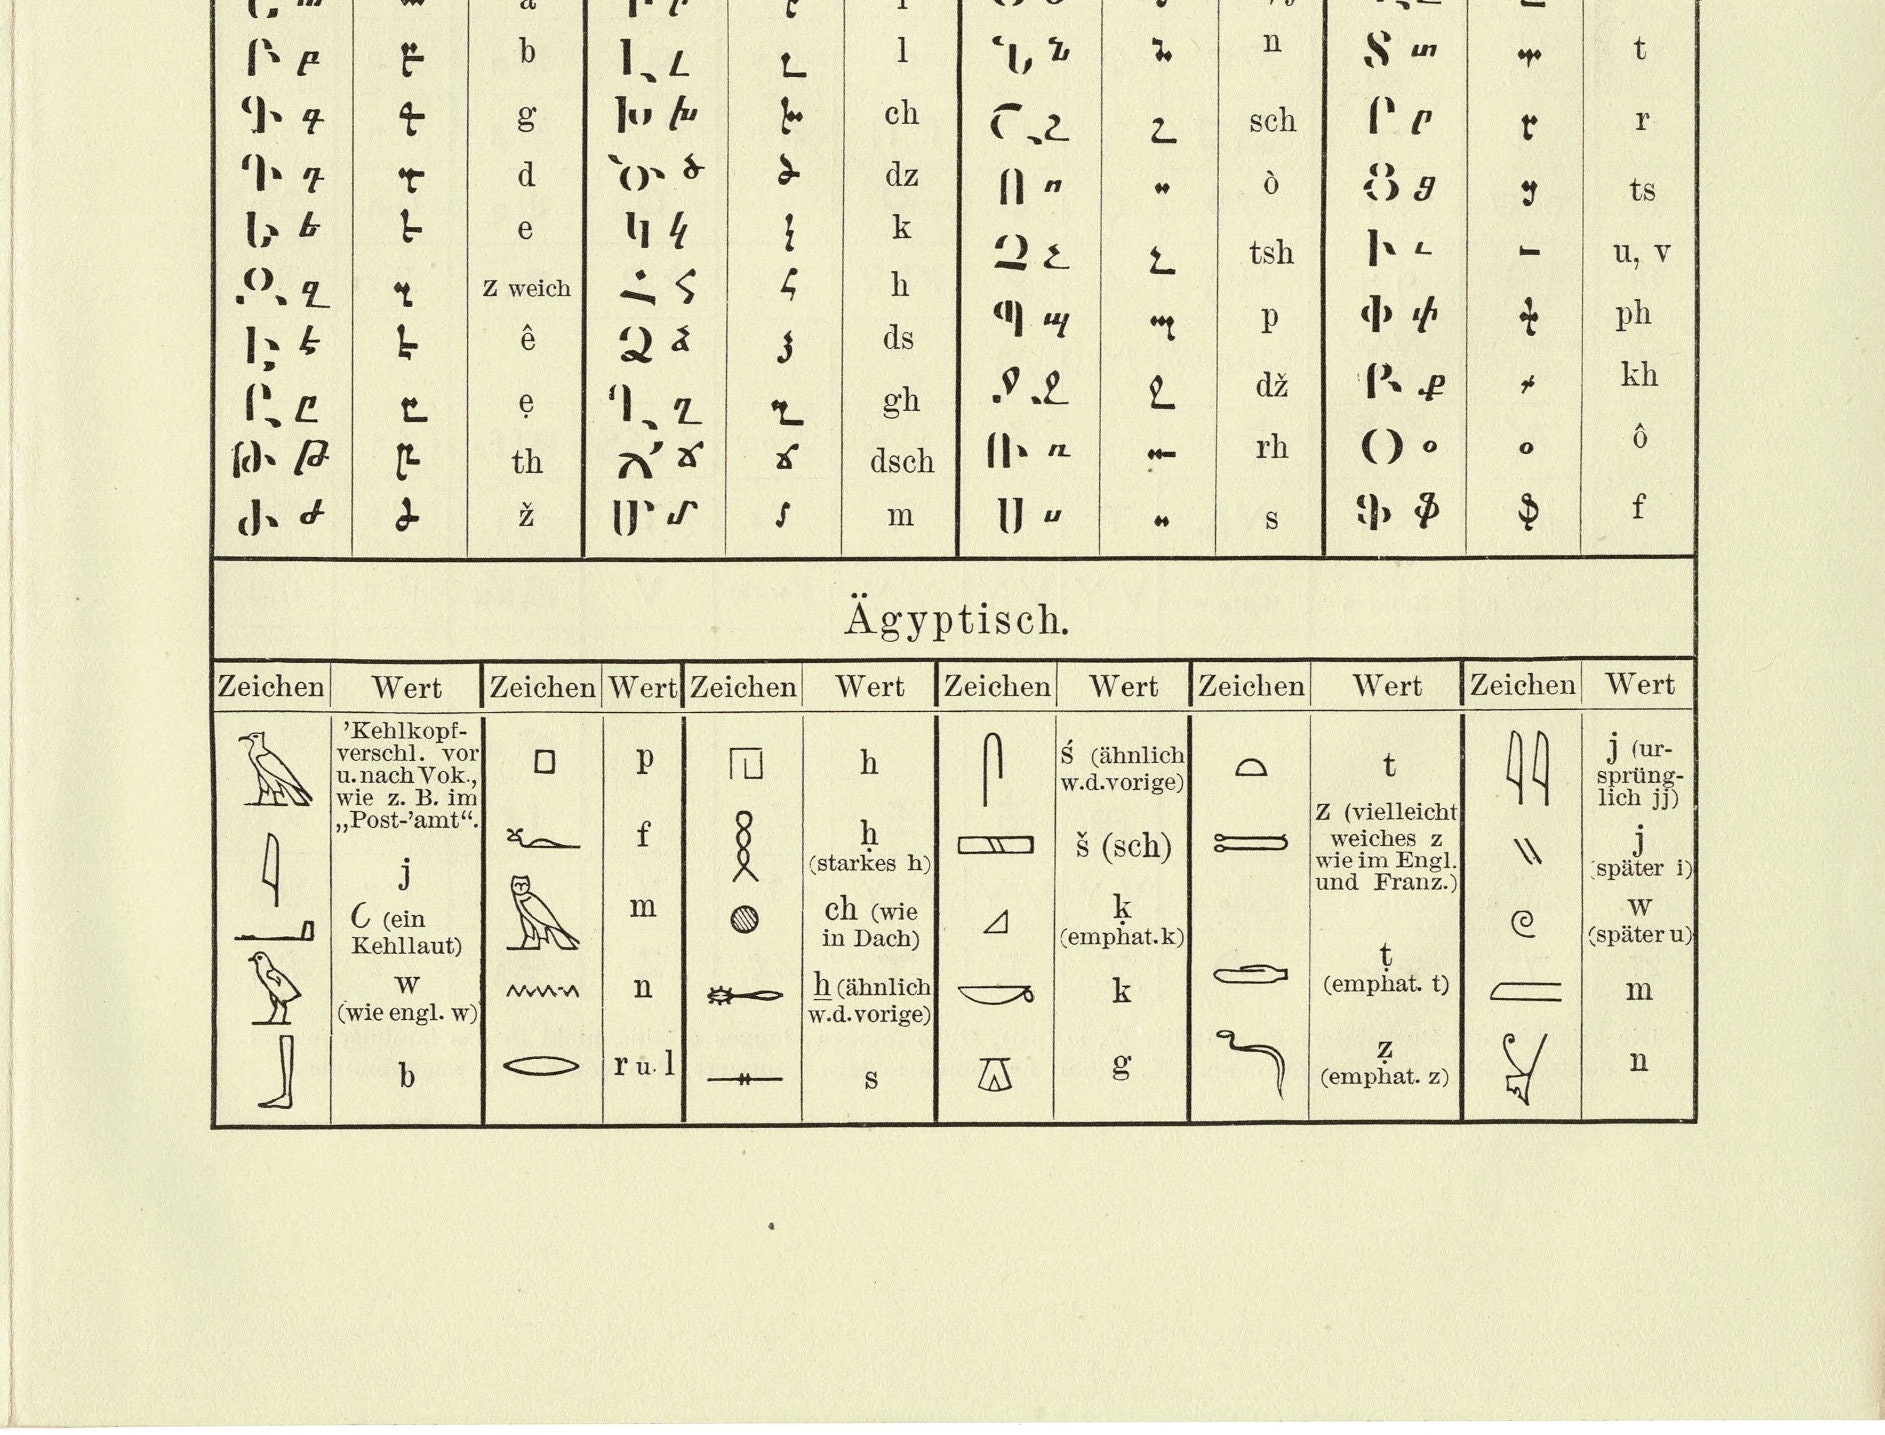 Բ բ b Լ լ l Ն ն n Տ տ t
Գ գ g Խ խ ch Շ շ sch Ր ր r
Դ դ d Ծ ծ dz Ո ո ò Ց ց ts
Ե ե e Կ կ k Չ չ tsh Ւ ւ u, v
Զ զ z weich Հ հ h Պ պ p Փ փ ph
Է է ê Ձ ձ ds Ջ ջ dž Ք ք kh
Ը ը ẹ Ղ ղ gh Ռ ռ rh Օ օ ô
Թ թ th Ճ ճ dsch Ս ս s Ֆ ֆ f
Ժ ժ ž Մ մ m
Ägyptisch.
Zeichen Wert Zeichen Wert Zeichen Wert Zeichen Wert Zeichen Wert Zeichen Wert
𓄿 ’Kehlkopf-
verschl. vor
u. nach Vok.,
wie z. B. im
„Post-’amt“.
𓇋 j
𓂝 C (ein
Kehllaut)
𓅱 w
(wie engl. w)
𓃀 b
𓊪 p
𓆑 f
𓅓 m
𓈖 n
𓂋 r u. l
𓉔 h
𓎛 ḥ
(starkes h)
𓐍 ch (wie
in Dach)
𓄡 ẖ (ähnlich
w. d. vorige)
𓊃 s
𓋴 ś (ähnlich
w. d. vorige)
𓈙 š (sch)
𓈎 ḳ
(emphat. k)
𓎡 k
𓎼 g
𓏏 t
𓍿 z (vielleicht
weiches z
wie im Engl.
und Franz.)
𓂧 ṭ
(emphat. t)
𓆓 ẓ
(emphat. z)
𓇌 j (ur-
sprüng-
lich jj)
𓏭 j
(später i)
𓏲 w
(später u)
𓐝 m
𓋔 n